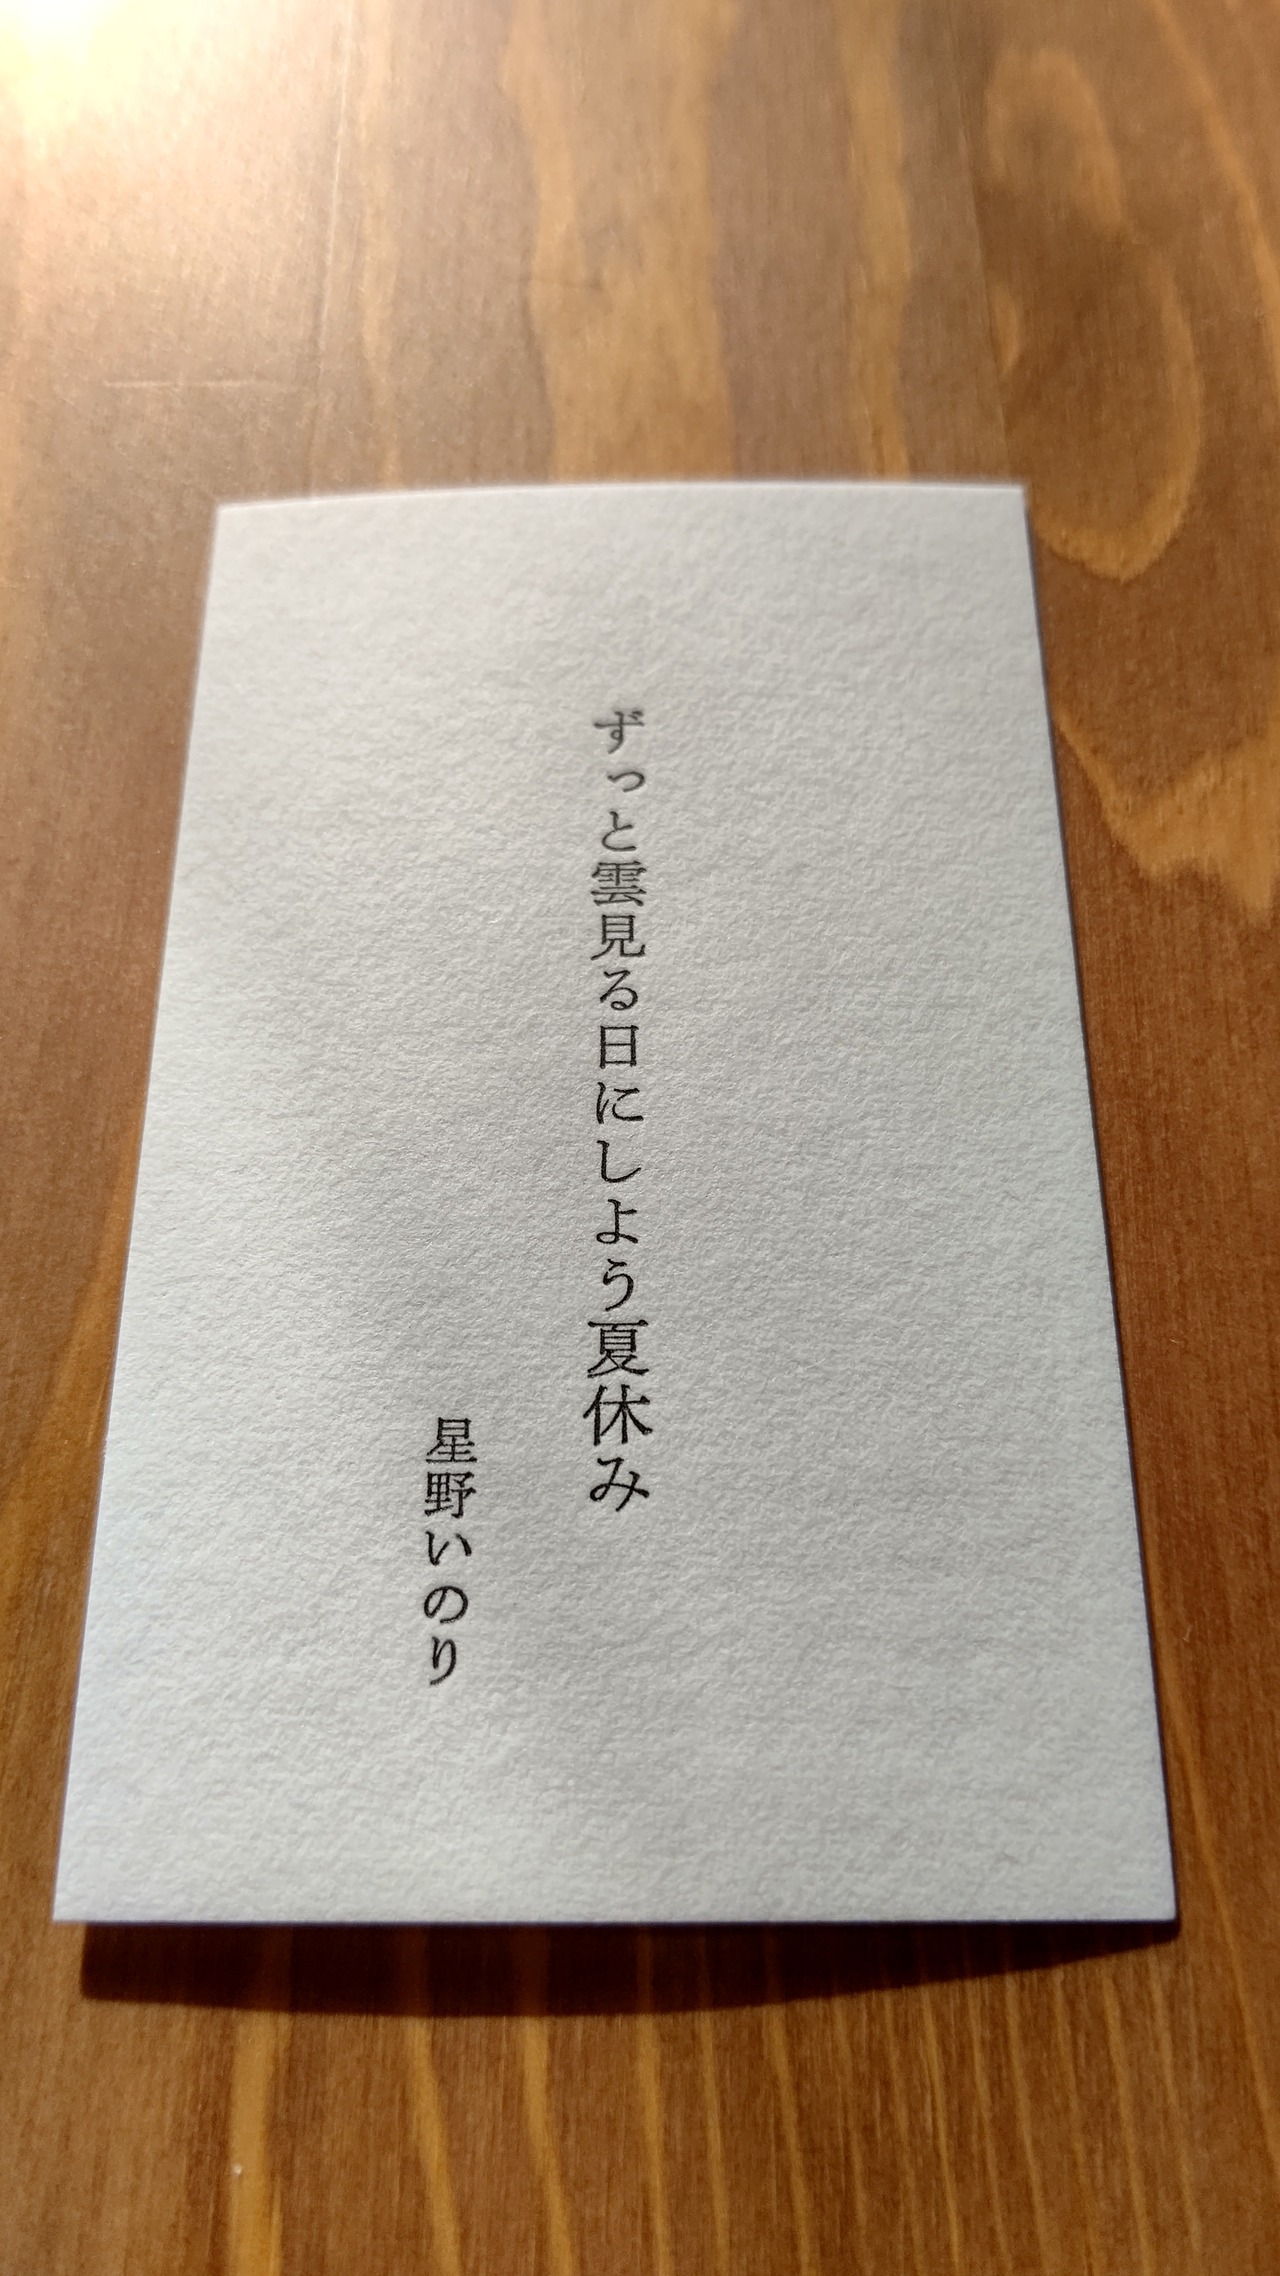 ずっと雲見る日にしよう夏休み
星野いのり